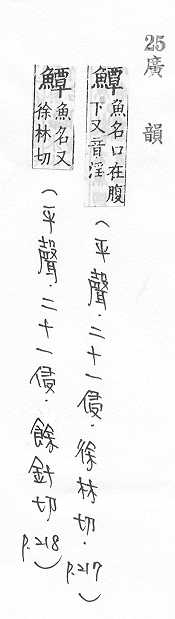 25廣韻
鱏魚名口在腹下又音淫（平聲．二十一侵．徐林切．p.217）
鱏魚名又徐林切（平聲．二十一侵．餘針切 p.218）